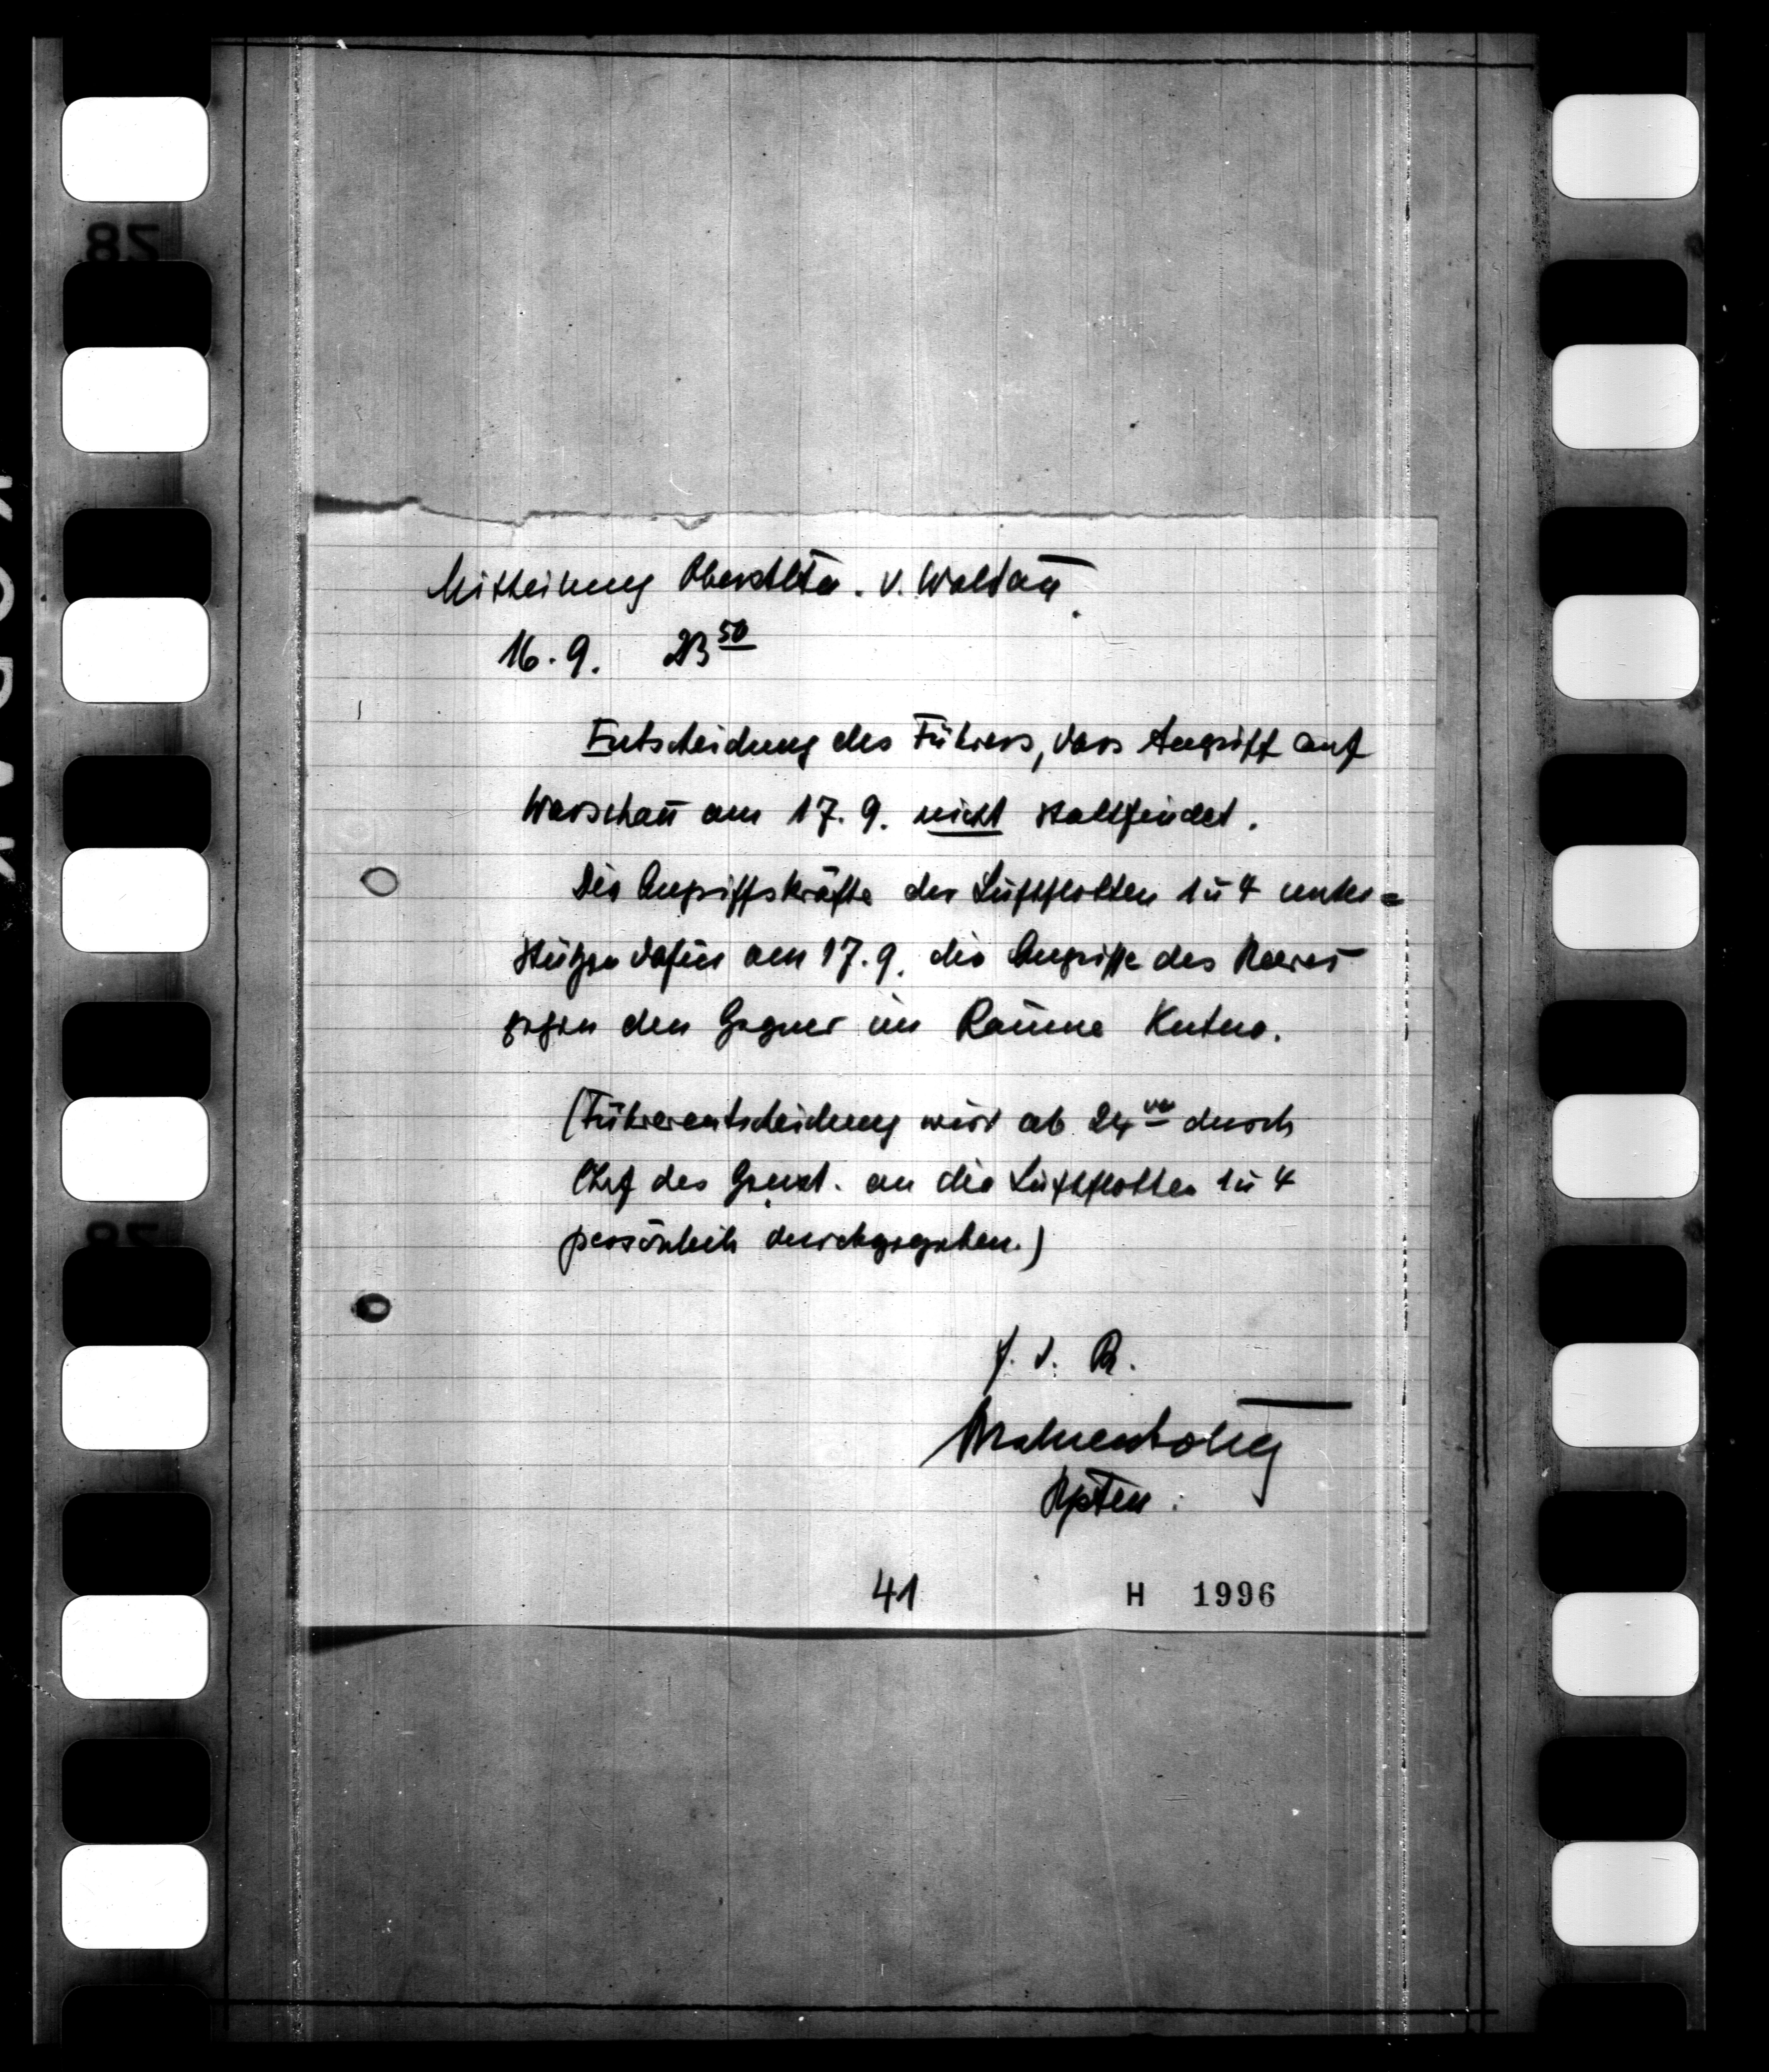 Mitteilung Oberstltn. v. Waldau.
16.9. 23⁵⁰
Entscheidung des Führers, dass Angriff auf
Warschau am 17.9. nicht stattfindet.
Die Angriffskräfte der Luftflotten 1 u 4 unter=
stützen dafür am 17.9. die Angriffe des Heeres
gegen den Gegner im Raume Kutno.
(Führerentscheidung wird ab 24⁰⁰ durch
Chef des Genst. an die Luftflotten 1 u 4
persönlich durchgegeben.)
F. d. R.
Hptm.
41 H 1996
82
KODAK